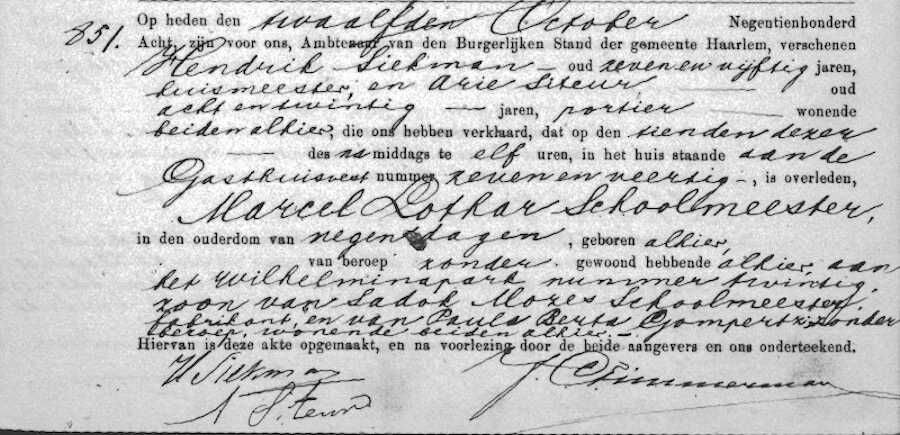 851.
Op heden den twaalfden October Negentienhonderd
Acht, zijn voor ons, Ambtenaar van den Burgerlijken Stand der gemeente Haarlem, verschenen
Hendrik Siekman — oud zeven en vijftig jaren,
huismeester, en Arie Siteur, — oud
acht en twintig — jaren, portier — wonende
beiden alhier, die ons hebben verklaard, dat op den tienden dezer
— des na middags te elf uren, in het huis staande aan de
Gasthuisvest nummer zeven en veertig —, is overleden,
Marcel Lothar Schoolmeester,
in den ouderdom van negen dagen, geboren alhier,
van beroep zonder gewoond hebbende alhier, aan
het Wilhelminapark nummer twintig,
zoon van Sadok Mozes Schoolmeester,
fabrikant, en van Paula Berta Gompertz, zonder
beroep, wonende beide alhier —
Hiervan is deze akte opgemaakt, en na voorlezing door de beide aangevers en ons onderteekend.
H Siekman
A Siteur